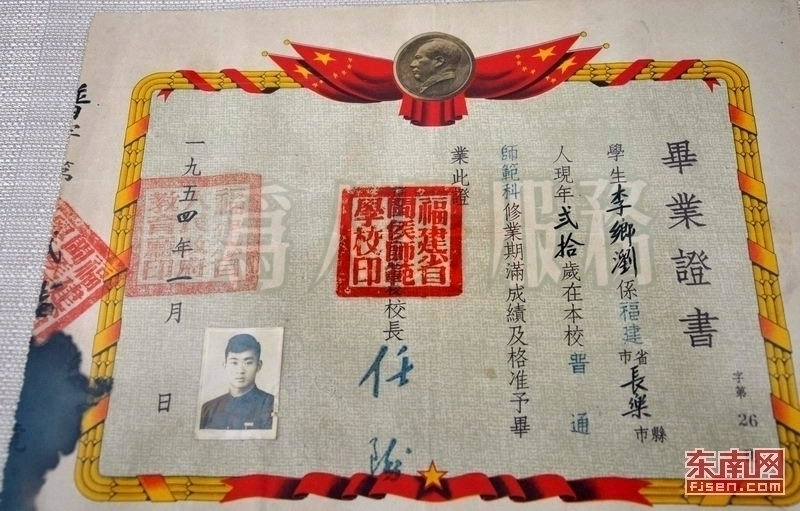 畢業證書
字第 26
學生李鄉瀏係福建省市長樂縣市
人現年弍拾歲在本校普通
師範科修業期滿成績及格准予畢
業此證
福建省
閩侯師範
學校印
校長 任
一九五四年一月 日
晋字第
為人民服務
东南网
fjsen.com